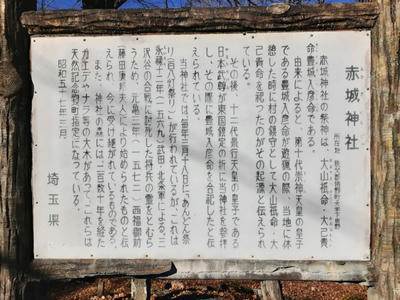 赤城神社
所在地 秩父郡
赤城神社の祭神は、大山祇命、大己貴
命、豊城入彦命である。
由来によると、第十代崇神天皇の皇子
である豊城入彦命が遊猟の際、当地に休
憩した時に村の鎮守として大山祇命、大
己貴命を祀ったのがその起源と伝えられ
ている。
その後、十二代景行天皇の皇子である
日本武尊が東国鎮定の折に当神社を参拝
し、その際に豊城入彦命を合祀したと伝
えられている。
当神社では、毎年三月十八日に「あんどん祭
り（百八灯祭り）」が行われているが、これは
永禄十二年（一五六九）武田・北条軍による、三
沢谷の合戦に討死した将兵の霊をとむら
うため、元亀三年（一五七二）西福御前
藤田康邦夫人により始められたものと伝
えられ、今日に受け継がれているものである。
また、神社の森には二百数十年を経た
カエデやナラ等の大木があって、これらは
天然記念物町指定になっている。
昭和五十七年三月
埼玉県